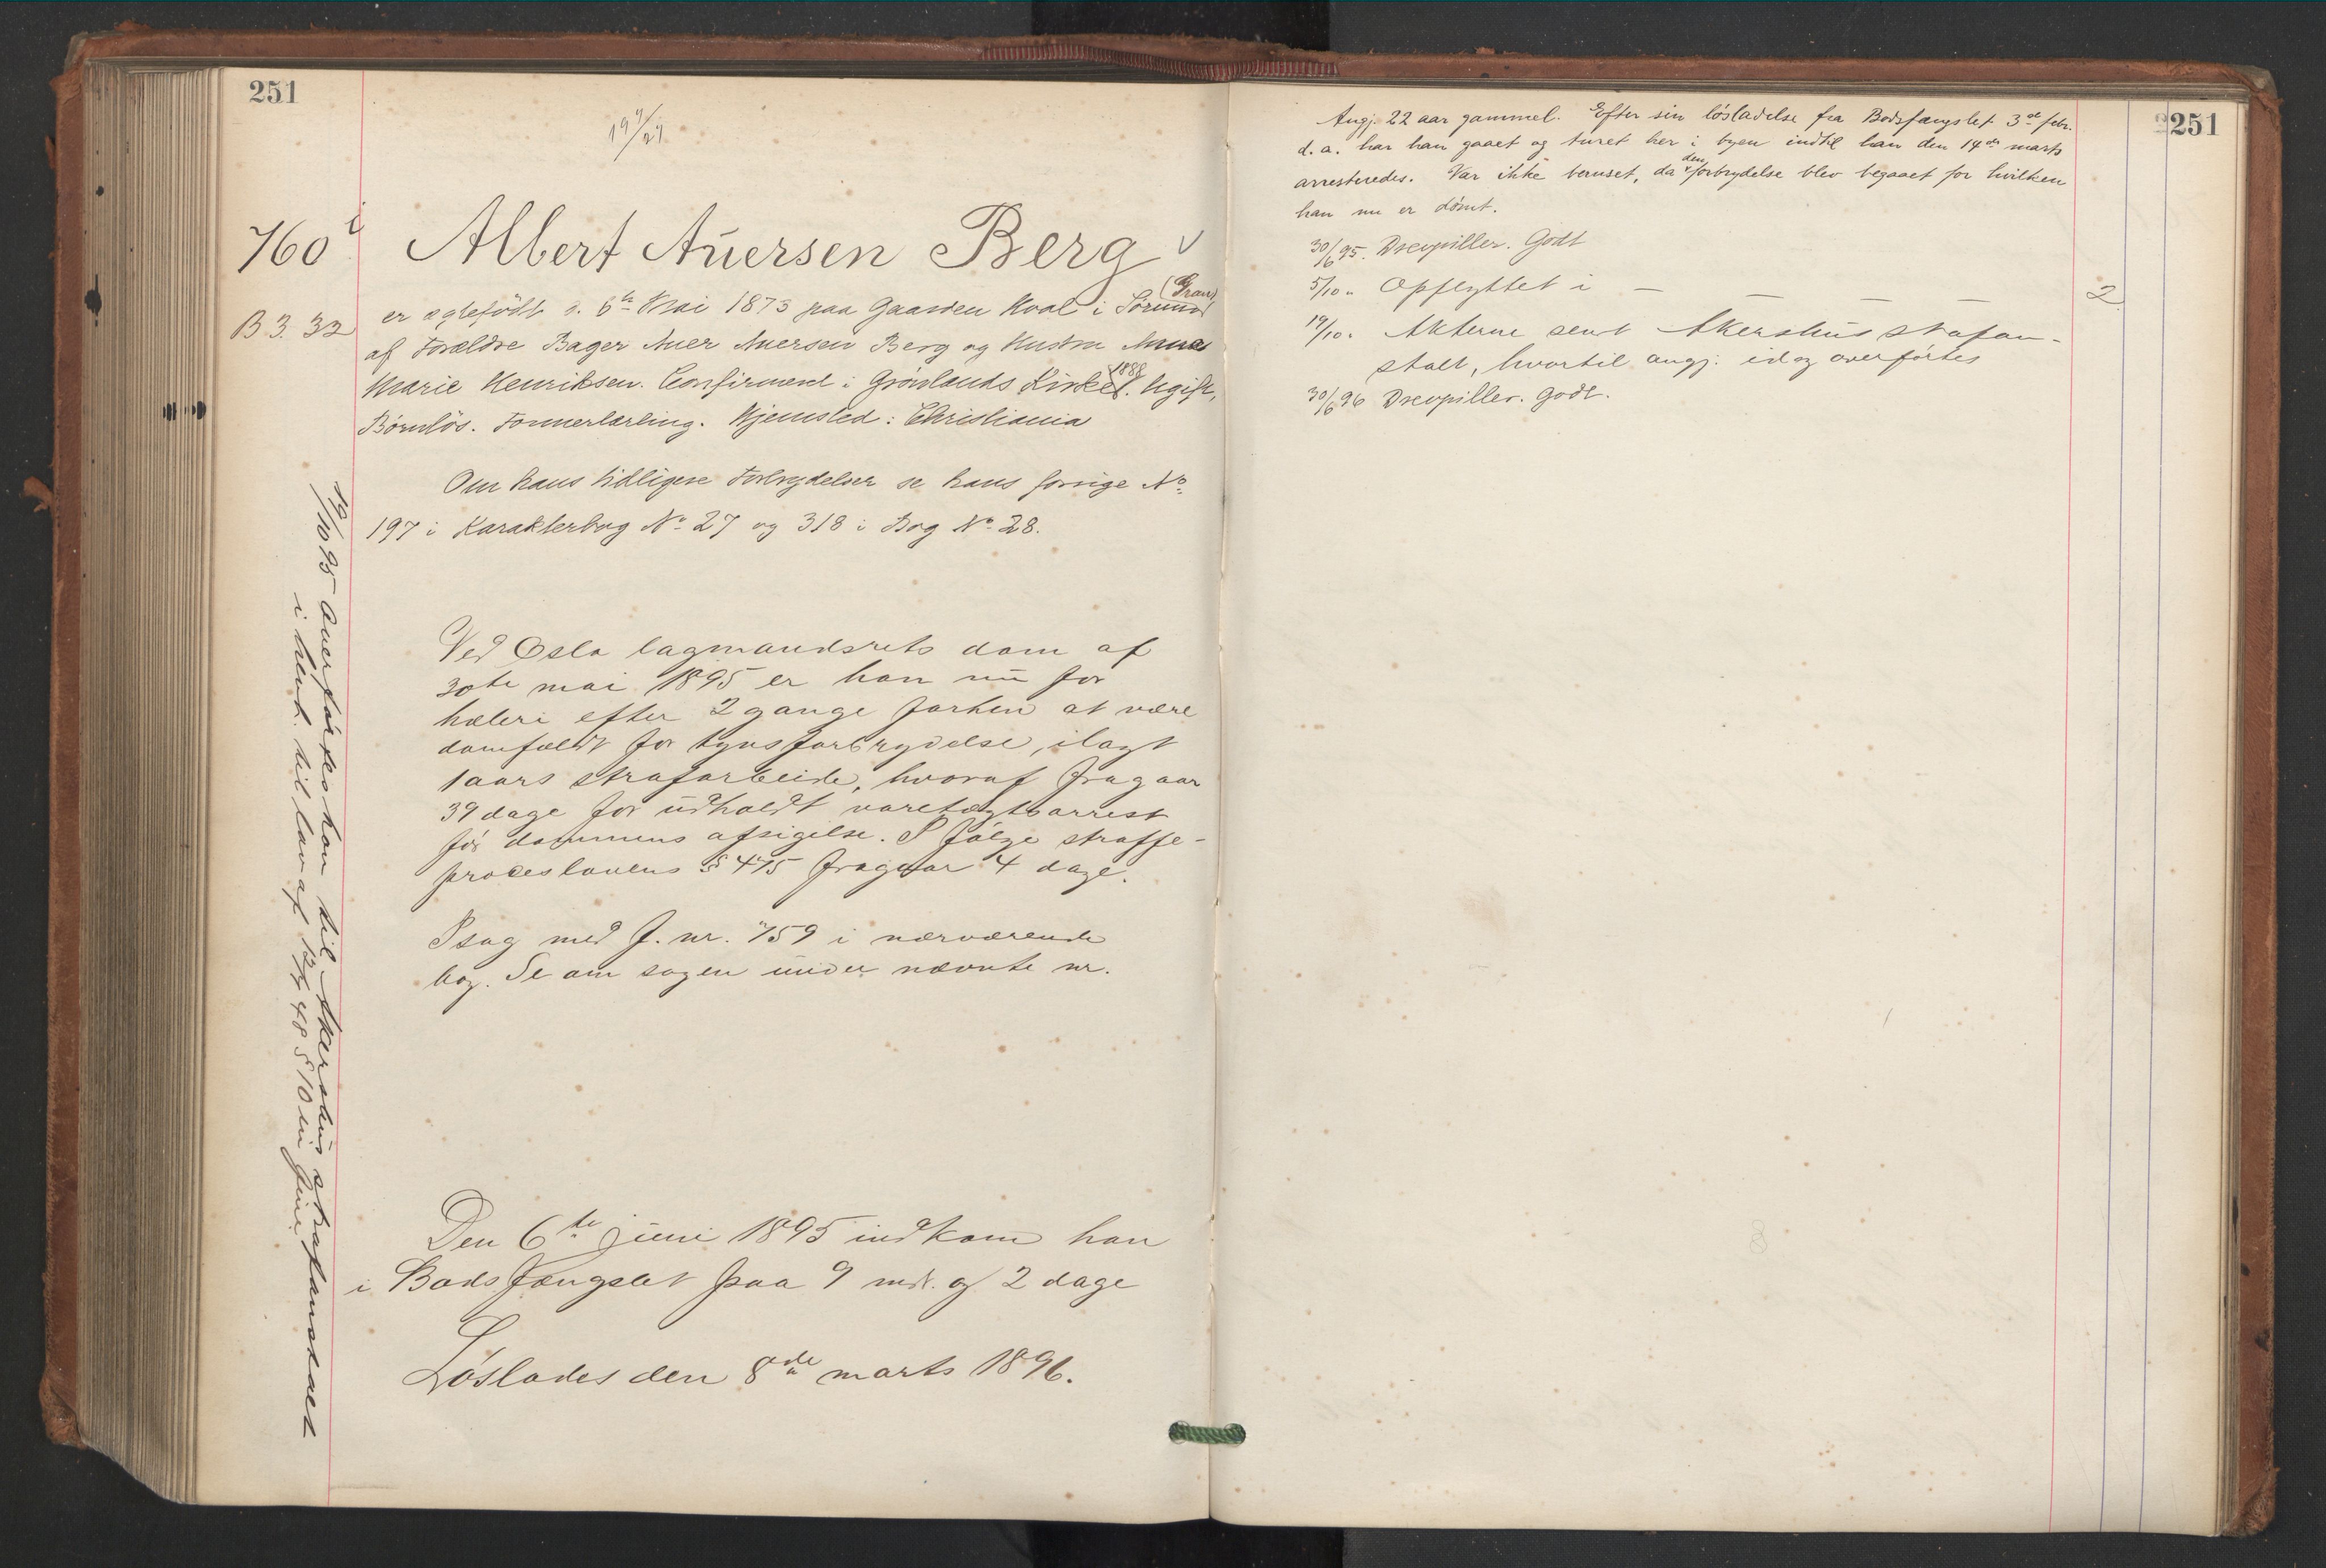 251
760
Albert Auersen Berg
(Gran)
B. 3. 32
er egtefödt d. 6te Mai 1873 paa Gaarden Hval i Sörum
af Forældre Bager Auer Auersen Berg og Hustru Anna
1888
Marie Henriksen. Confirmeret i Grönlands Kirke. Ugift,
Börnlös. Formerlærling. Hjemsted: Christiania
Om hans tidligere Forbrydelser se hans forrige No.
197 i Karakterbog No. 27 og 318 i Bog No. 28.
Ved Oslo lagmandsrets dom af
30te mai 1895 er han nu for
hæleri efter 2 gange forhen at være
domfældt for tyvsforbrydelse, ilagt
1 aars strafarbeide, hvoraf fragaar
39 dage for udholdt varetægtsarrest
för dommens afsigelse. I fölge straffe-
proceslovens § 475 fragaar 4 dage.
I sag med f. nr. 759 i nærværende
bog. Se om sagen under nævnte nr.
Den 6te juni 1895 indkom han
i Bodsfængslet paa 9 mdr. og 2 dage
Löslades den 8de marts 1896.
19/10 95 överförtes han til Akershus strafanstalt
i henh. til lov af 48 § 10 in fine.
251
Angj. 22 aar gammel. Efter sin lösladelse fra Bodsfængslet 3de febr.
d. a. har han gaaet og turet her i byen indtil han den 14de marts
den
arresteredes. Var ikke beruset, da forbrydelse blev begaaet for hvilken
han nu er dömt.
30/6 95. Drevpiller. Godt
5/10 " Opflyttet i — — — — 2
19/10 " Akterne sendt Akershus strafan-
stalt, hvortil angj. idag overförtes
30/6 96 Drevpiller. Godt.